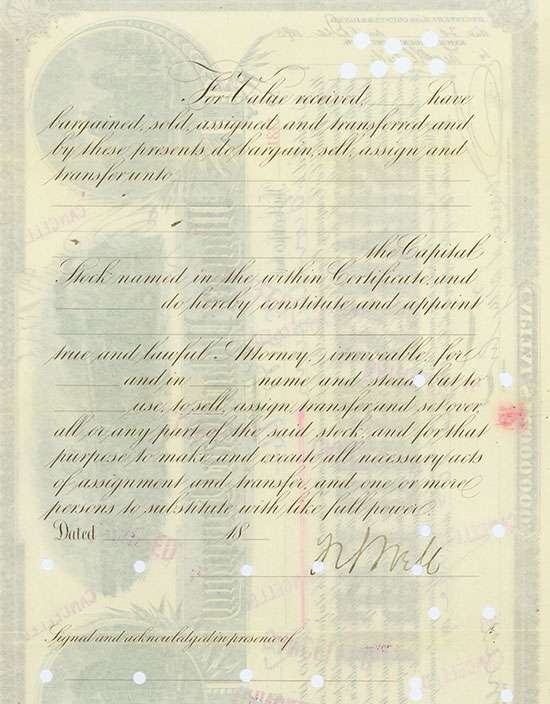 For Value received, have
bargained, sold, assigned and transferred and
by these presents do bargain, sell, assign and
transfer unto
the Capital
Stock named in the within Certificate, and
do hereby constitute and appoint
true and lawful Attorney, irrevocable, for
and in name and stead, but to
use, to sell, assign, transfer and set over,
all or any part of the said stock, and for that
purpose to make and execute all necessary acts
of assignment and transfer, and one or more
persons to substitute with like full power.
Dated 18
Signed and acknowledged in presence of